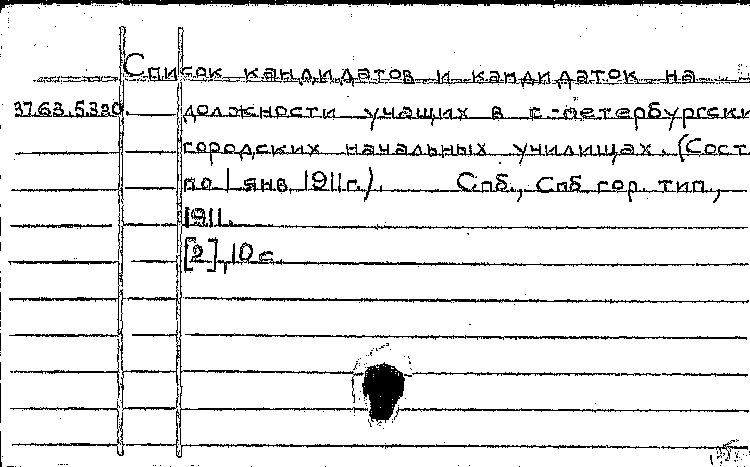 Список кандидатов и кандидаток на
37.63.5.380. должности учащих в с.-петербургски
городских начальных училищах. (Сост
по 1 янв. 1911г.). Спб., Спб. гор. тип.,
1911.
[2], 10 с.